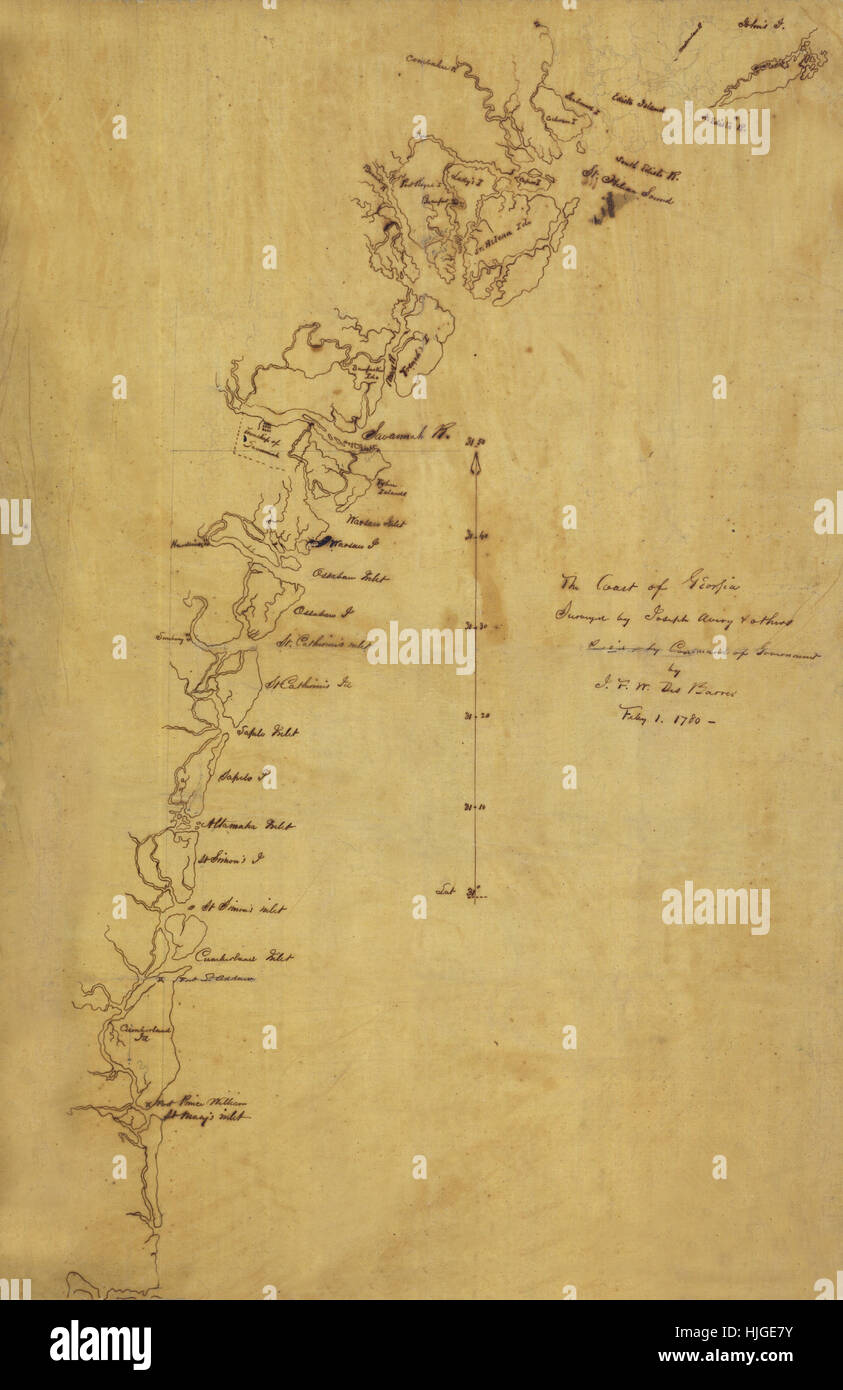 John's I.
Combahee R
Edisto Island
N Edisto R.
South Edisto R.
St. Helena Sound
Port Royal I
Lady's I
St Helena Isle
Savannah R.
Township of
Savannah
Tybee
Islands
31.50
Warsaw Inlet
Warsaw I
31-40
Ossabaw Inlet
Ossabaw I
31-30
St. Catherine's inlet
St Catherine's Isle
31-20
Sapelo Inlet
Sapelo I
31-10
Altamaha Inlet
St Simon's I
Lat 31°
St Simon's inlet
Cumberland Inlet
Fort St Andrew
Cumberland
Isle
Fort Prince William
St Mary's inlet
The Coast of Georgia
Surveyed by Joseph Avery & others
by Command of Government
by
J. F. W. Des Barres
Feby 1. 1780 -
alamy
Image ID: HJGE7Y
www.alamy.com